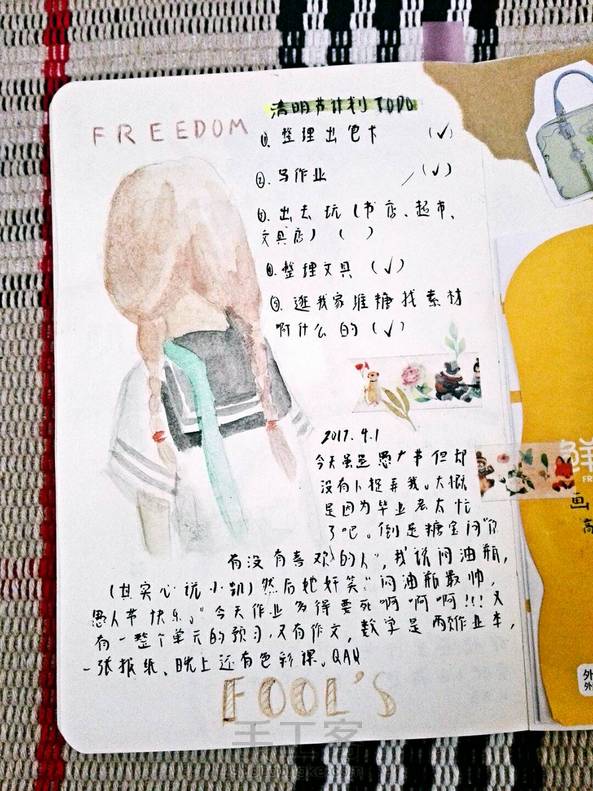 FREEDOM
清明节计划TODO
①.整理出色卡 (✓)
②.写作业 (✓)
③.出去玩(书店、超市、
文具店) ( )
④.整理文具 (✓)
⑤.逛我家堆糖找素材
啊什么的 (✓)
2017.4.1
今天虽是愚人节但却
没有人捉弄我。大概
是因为毕业层太忙
了吧。倒是糖宝问"你
有没有喜欢的人",我说闷油瓶,
(其实心说小凯)然后她奸笑"闷油瓶最帅,
愚人节快乐。"今天作业多得要死啊啊啊!!!又
有一整个单元的预习,又有作文,数学是两张作业卷,
一张报纸、晚上还有色彩课。QAQ
FOOL'S
手工客
鲜
FR
画
外
外